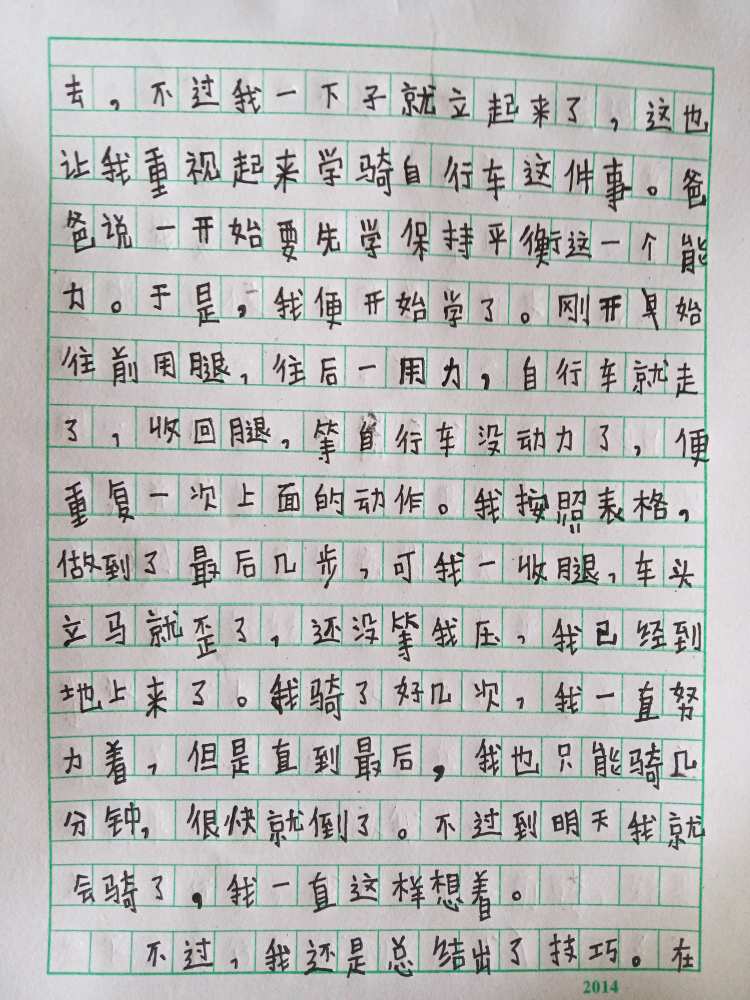 去，不过我一下子就立起来了，这也
让我重视起来学骑自行车这件事。爸
爸说一开始要先学保持平衡这一个能
力。于是，我便开始学了。刚开始
往前用腿，往后一用力，自行车就走
了，收回腿，等自行车没动力了，便
重复一次上面的动作。我按照表格，
做到了最后几步，可我一收腿，车头
立马就歪了，还没等我压，我已经到
地上来了。我骑了好几次，我一直努
力着，但是直到最后，我也只能骑几
分钟，很快就倒了。不过到明天我就
会骑了，我一直这样想着。
不过，我还是总结出了技巧。在
2014